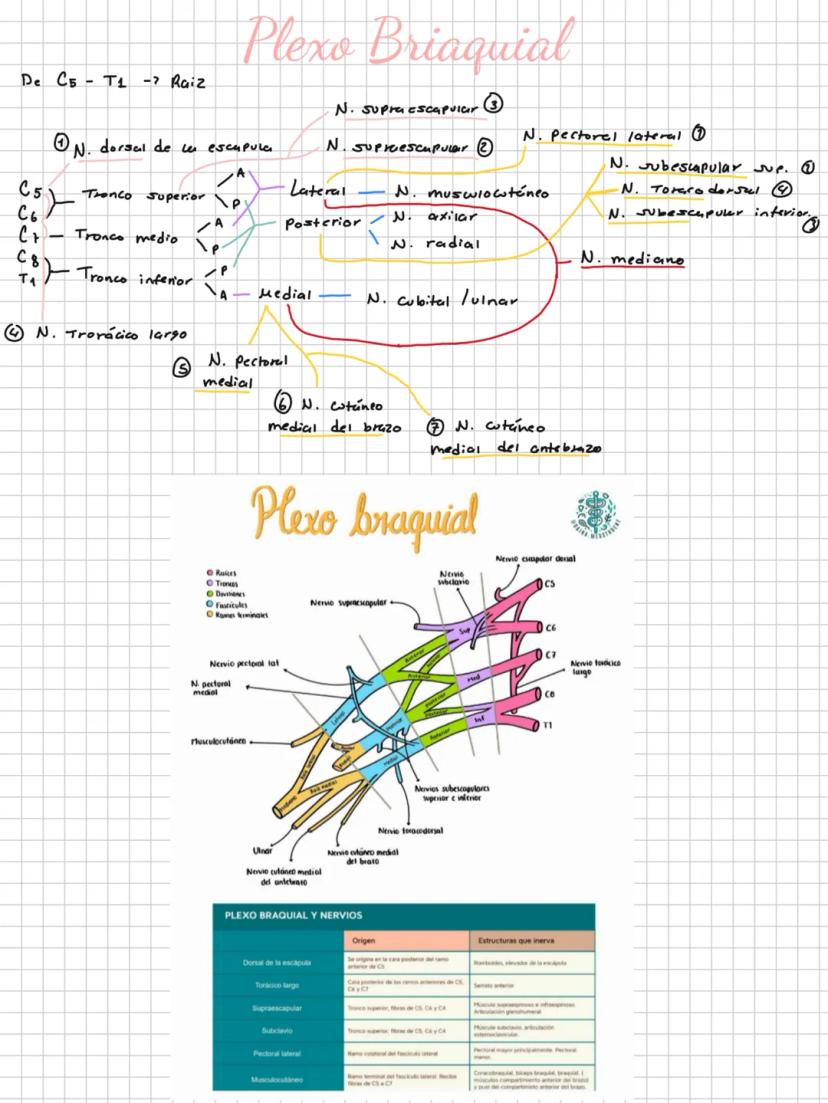 Plexo Briaquial
De C5 - T1 -> Raiz
N. supraescapular ③
① N. dorsal de la escapula
N. supraescapular ②
N. pectoral lateral ①
N. subescapular sup. ①
N. Toraco dorsal ④
N. subescapular inferior.
③
C5
C6
C7
C8
T1
Tronco superior
Tronco medio
Tronco inferior
A
P
A
P
P
A
Lateral
N. musculocutáneo
Posterior
N. axilar
N. radial
N. mediano
Medial
N. cubital /ulnar
④ N. Torácico largo
⑤ N. Pectoral
medial
⑥ N. cutáneo
medial del brazo
⑦ N. cutáneo
medial del antebrazo
Plexo braquial
Raíces
Troncos
Divisiones
Fascículos
Ramos terminales
Nervio escapular dorsal
Nervio
subclavio
Nervio supraescapular
C5
C6
C7
C8
T1
Sup
Med
Inf
Anterior
Anterior
Posterior
Posterior
Nervio torácico
largo
Nervio pectoral lat
N. pectoral
medial
Lateral
Medial
Musculocutáneo
Raíz medial
Mediano
Nervios subescapulares
superior e inferior
Nervio toracodorsal
Ulnar
Nervio cutáneo medial
del brazo
Nervio cutáneo medial
del antebrazo
PLEXO BRAQUIAL Y NERVIOS
Origen
Estructuras que inerva
Dorsal de la escápula
Se origina en la cara posterior del ramo
anterior de C5
Romboides, elevador de la escápula
Torácico largo
Cara posterior de los ramos anteriores de C5,
C6 y C7
Serrato anterior
Supraescapular
Tronco superior, fibras de C5, C6 y C4
Músculo supraespinoso e infraespinoso.
Articulación glenohumeral
Subclavio
Tronco superior, fibras de C5, C6 y C4
Músculo subclavio, articulación
esternoclavicular.
Pectoral lateral
Ramo colateral del fascículo lateral
Pectoral mayor principalmente. Pectoral
menor.
Musculocutáneo
Ramo terminal del fascículo lateral. Recibe
fibras de C5 a C7
Coracobraquial, bíceps braquial, braquial. (
músculos compartimiento anterior del brazo)
y piel del compartimiento anterior del brazo.